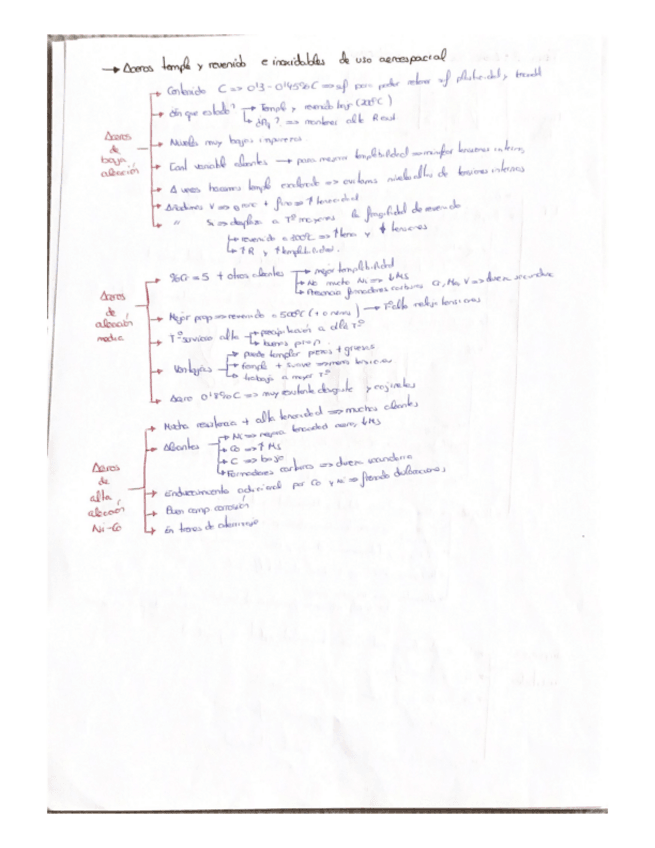 → Aceros temple y revenido e inoxidables de uso aeroespacial
Aceros de baja aleación
→ Contenido C => 0'3 - 0'45%C => suf para poder retener suf plasticidad y
→ ¿En que estado? → Temple y revenido bajo (200ºC)
→ ¿ ? => mantener alta R
→ Niveles muy bajos impurezas
→ Cant variable aleantes → para mejorar templabilidad => tensiones internas
→ A veces hacemos temple escalonado => evitamos niveles altos de tensiones internas
→ Añadimos V => grano + fino => ↑ tenacidad
→ " Si => desplaza a Tº mayores la fragilidad de revenido
→ revenido a 300ºC => ↑ tena y ↓ tensiones
→ ↑ R y ↑ templabilidad.
Aceros de aleación media
→ %Cr = 5 + otros aleantes → mejor templabilidad
→ No mucho Ni => ↓ Ms
→ Presencia formadores carburos Cr, Mo, V => dureza secundaria
→ Mejor prop => revenido ≈ 500ºC (+ o menos) → Tº alta relaja tensiones
→ Tº servicio alta → precipitación a alta Tº
→ buenas prop.
→ Ventajas → puede templar piezas + gruesas
→ temple + suave => menos tensiones
→ trabaja a mayor Tº
→ Acero 0'8%C => muy resistente desgaste y cojinetes
Aceros de alta aleación Ni-Co
→ Mucha resistencia + alta tenacidad => muchos aleantes
→ Aleantes → Ni => mejora tenacidad acero, ↓ Ms
→ Co => ↑ Ms
→ C => bajo
→ Formadores carburos => dureza secundaria
→ Endurecimiento adicional por Co y Ni => frenado dislocaciones
→ Buen comp corrosión
→ En trenes de aterrizaje